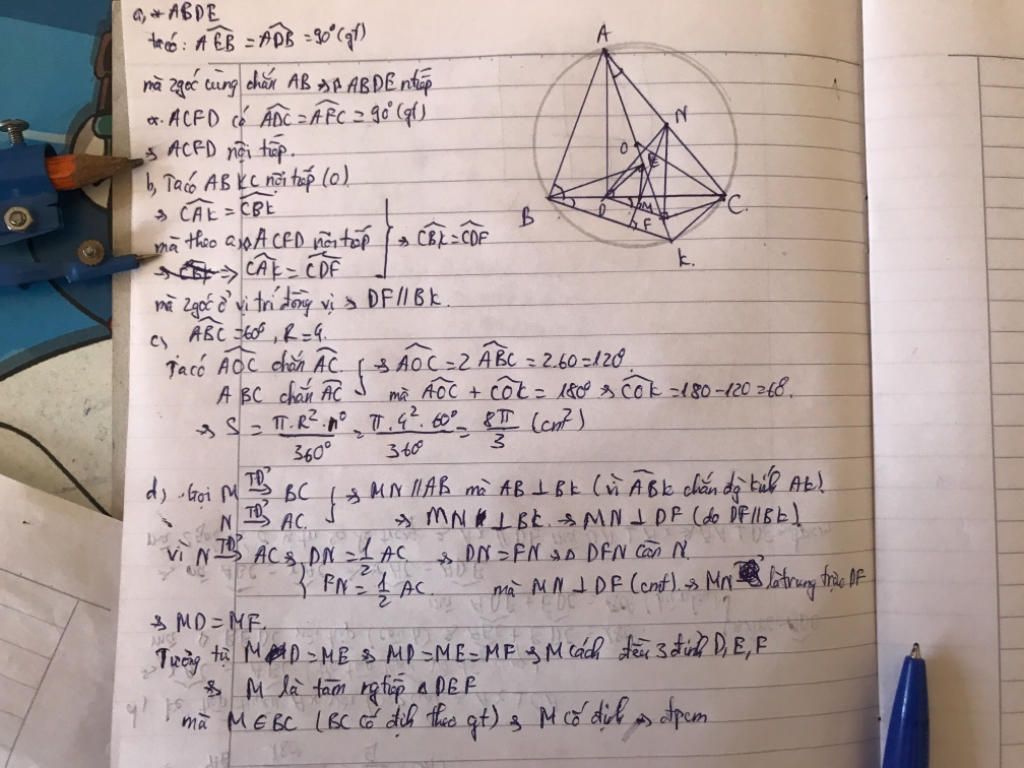 a, * ABDE
ta có: AEB = ADB = 90° (gt)
mà 2 góc cùng chắn AB => ◇ ABDE ntiếp
* ACFD có ADC = AFC = 90° (gt)
=> ACFD nội tiếp.
b, Ta có ABKC nội tiếp (O)
=> CAK = CBK
mà theo a, ◇ ACFD nội tiếp } => CBK = CDF
=> CAK = CDF
mà 2 góc ở vị trí đồng vị => DF // BK.
c, ABC = 60°, R = 4.
Ta có AOC chắn AC. } => AOC = 2 ABC = 2.60 = 120°
ABC chắn AC mà AOC + COK = 180° => COK = 180 - 120 = 60.
=> S = π.R².n°/360° = π.4².60°/360° = 8π/3 (cm²)
d, Gọi M TĐ BC } => MN // AB mà AB ⊥ BK (vì ABK chắn đg kính AK)
N TĐ AC. => MN ⊥ BK => MN ⊥ DF (do DF // BK)
vì N TĐ AC => { DN = 1/2 AC => DN = FN => Δ DFN cân N.
FN = 1/2 AC. mà MN ⊥ DF (cmt) => MN là trung trực DF
=> MD = MF.
Tương tự MD = ME => MD = ME = MF => M cách đều 3 đỉnh D, E, F
=> M là tâm ngtiếp Δ DEF
mà M ∈ BC (BC cố định theo gt) => M cố định => đpcm
A
N
O
E
B
D
M
C
F
K